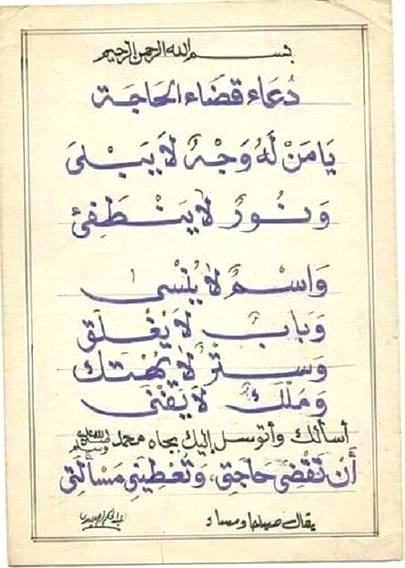 بسم الله الرحمن الرحيم
دُعَاء قضَاء الحَاجَة
يَا مَنْ لَهُ وَجْهٌ لَا يَبْلَى
وَنُورٌ لَا يَنْطَفِئُ
وَاسْمٌ لَا يُنْسَى
وَبَابٌ لَا يُغْلَق
وَسِتْرٌ لَا يُهْتَك
وَمُلْكٌ لَا يَفْنَى
أسألك وأتوسل إليك بجاه محمد صلى الله عليه وسلم
أَنْ تَقْضِيَ حَاجَتِي، وَتُعْطِيَنِي مَسْأَلَتِي
يقال صباحا ومساء